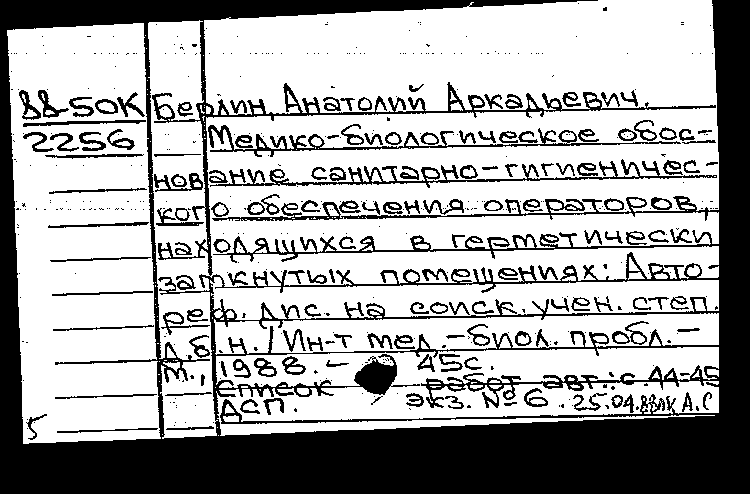 88-50К Берлин, Анатолий Аркадьевич.
2256 Медико-биологическое обос-
нование санитарно-гигиеничес-
кого обеспечения операторов,
находящихся в герметически
замкнутых помещениях: Авто-
реф. дис. на соиск. учен. степ.
д.б.н. / Ин-т мед.-биол. пробл. –
М., 1988. – 45с.
Список работ авт.: с. 44-45
ДСП. экз. №6. 25.04.88 А.С
5